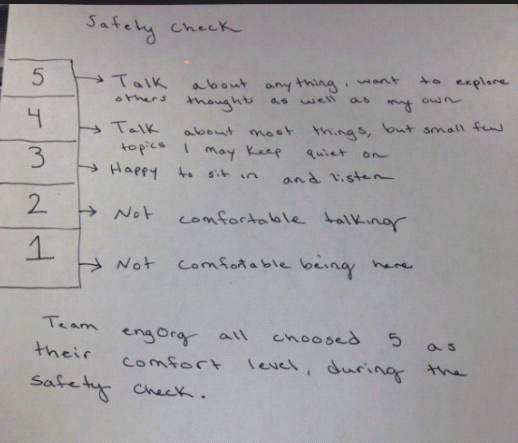 Safety Check
5 → Talk about anything, want to explore
others thoughts as well as my own
4 → Talk about most things, but small few
topics I may keep quiet on
3 → Happy to sit in and listen
2 → Not comfortable talking
1 → Not comfotable being here
Team engOrg all choosed 5 as
their comfort level, during the
Safety Check.